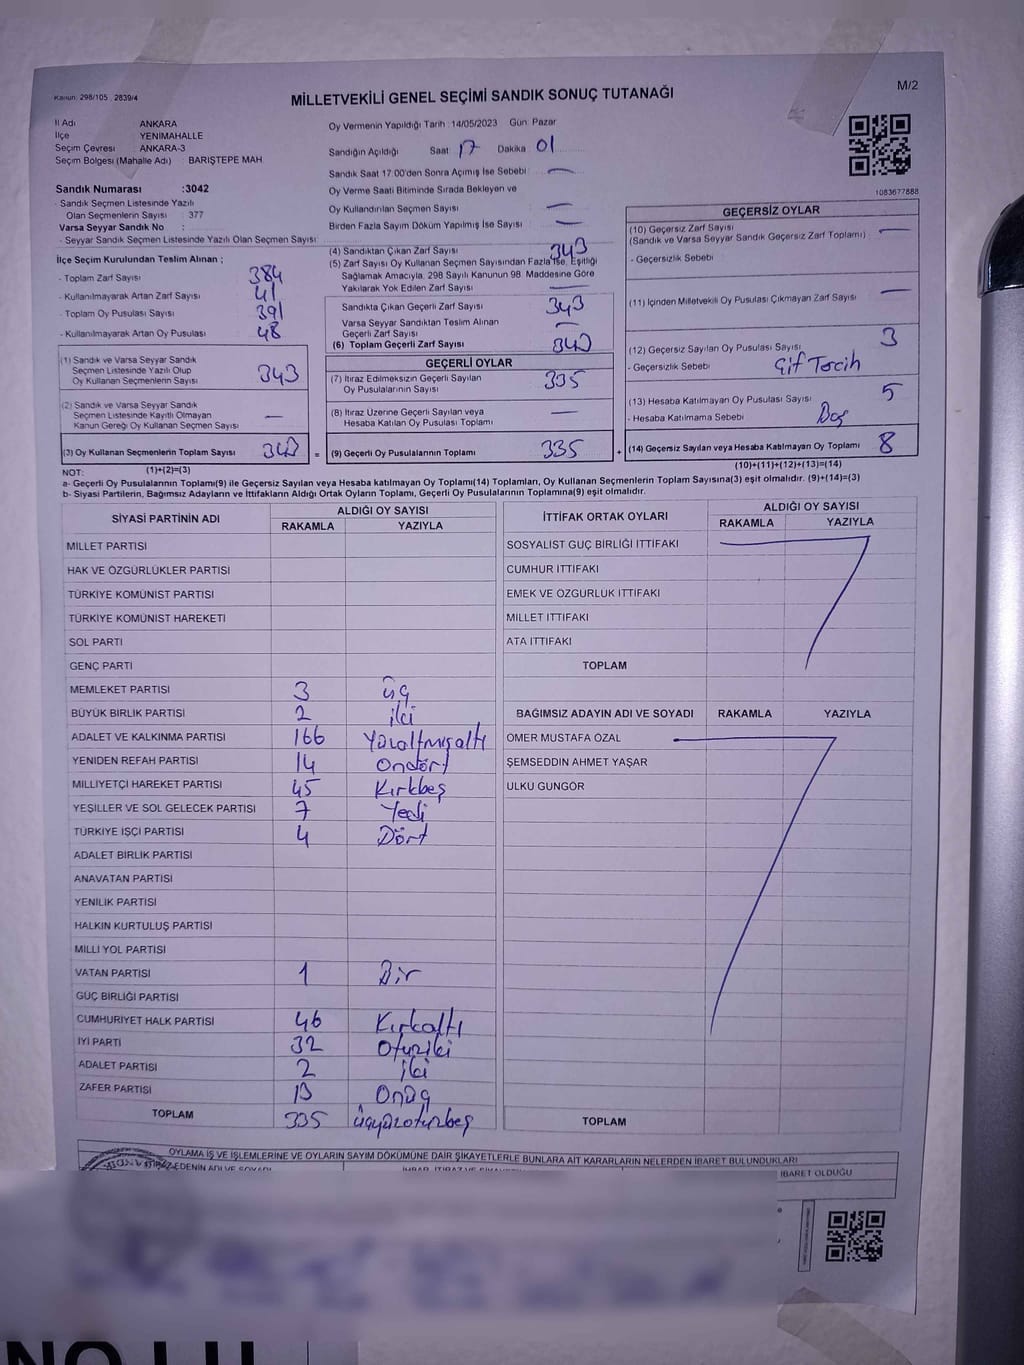 Kanun: 298/105 , 2839/4
MİLLETVEKİLİ GENEL SEÇİMİ SANDIK SONUÇ TUTANAĞI
M/2
İl Adı ANKARA
İlçe YENİMAHALLE
Seçim Çevresi ANKARA-3
Seçim Bölgesi (Mahalle Adı) BARIŞTEPE MAH
Sandık Numarası :3042
- Sandık Seçmen Listesinde Yazılı
Olan Seçmenlerin Sayısı : 377
Varsa Seyyar Sandık No :
- Seyyar Sandık Seçmen Listesinde Yazılı Olan Seçmen Sayısı
Oy Vermenin Yapıldığı Tarih :14/05/2023 Gün: Pazar
Sandığın Açıldığı Saat 17 Dakika 01
Sandık Saat 17:00'den Sonra Açılmış İse Sebebi —
Oy Verme Saati Bitiminde Sırada Bekleyen ve
Oy Kullandırılan Seçmen Sayısı —
Birden Fazla Sayım Döküm Yapılmış İse Sayısı —
1083677888
İlçe Seçim Kurulundan Teslim Alınan ;
- Toplam Zarf Sayısı 384
- Kullanılmayarak Artan Zarf Sayısı 41
- Toplam Oy Pusulası Sayısı 391
- Kullanılmayarak Artan Oy Pusulası 48
(1) Sandık ve Varsa Seyyar Sandık
Seçmen Listesinde Yazılı Olup
Oy Kullanan Seçmenlerin Sayısı 343
(2) Sandık ve Varsa Seyyar Sandık
Seçmen Listesinde Kayıtlı Olmayan
Kanun Gereği Oy Kullanan Seçmen Sayısı —
(3) Oy Kullanan Seçmenlerin Toplam Sayısı 343 =
(1)+(2)=(3)
(4) Sandıktan Çıkan Zarf Sayısı 343
(5) Zarf Sayısı Oy Kullanan Seçmen Sayısından Fazla İse, Eşitliği
Sağlamak Amacıyla, 298 Sayılı Kanunun 98. Maddesine Göre
Yakılarak Yok Edilen Zarf Sayısı —
Sandıkta Çıkan Geçerli Zarf Sayısı 343
Varsa Seyyar Sandıktan Teslim Alınan
Geçerli Zarf Sayısı —
(6) Toplam Geçerli Zarf Sayısı 343
GEÇERLİ OYLAR
(7) İtiraz Edilmeksizin Geçerli Sayılan
Oy Pusulalarının Sayısı 335
(8) İtiraz Üzerine Geçerli Sayılan veya
Hesaba Katılan Oy Pusulası Toplamı —
(9) Geçerli Oy Pusulalarının Toplamı 335 +
GEÇERSİZ OYLAR
(10) Geçersiz Zarf Sayısı —
(Sandık ve Varsa Seyyar Sandık Geçersiz Zarf Toplamı)
- Geçersizlik Sebebi
(11) İçinden Milletvekili Oy Pusulası Çıkmayan Zarf Sayısı —
(12) Geçersiz Sayılan Oy Pusulası Sayısı 3
- Geçersizlik Sebebi Çift Tercih
(13) Hesaba Katılmayan Oy Pusulası Sayısı 5
- Hesaba Katılmama Sebebi Boş
(14) Geçersiz Sayılan veya Hesaba Katılmayan Oy Toplamı 8
(10)+(11)+(12)+(13)=(14)
NOT:
a- Geçerli Oy Pusulaları Toplamı(9) ile Geçersiz Sayılan veya Hesaba katılmayan Oy Toplamı(14) Toplamları, Oy Kullanan Seçmenlerin Toplam Sayısına(3) eşit olmalıdır. (9)+(14)=(3)
b- Siyasi Partilerin, Bağımsız Adayların ve İttifakların Aldığı Ortak Oyların Toplamı, Geçerli Oy Pusulalarının Toplamına(9) eşit olmalıdır.
SİYASİ PARTİNİN ADI ALDIĞI OY SAYISI
RAKAMLA YAZIYLA
MİLLET PARTİSİ
HAK VE ÖZGÜRLÜKLER PARTİSİ
TÜRKİYE KOMÜNİST PARTİSİ
TÜRKİYE KOMÜNİST HAREKETİ
SOL PARTİ
GENÇ PARTİ
MEMLEKET PARTİSİ 3 üç
BÜYÜK BİRLİK PARTİSİ 2 iki
ADALET VE KALKINMA PARTİSİ 166 Yüzaltmışaltı
YENİDEN REFAH PARTİSİ 14 Ondört
MİLLİYETÇİ HAREKET PARTİSİ 45 Kırkbeş
YEŞİLLER VE SOL GELECEK PARTİSİ 7 Yedi
TÜRKİYE İŞÇİ PARTİSİ 4 Dört
ADALET BİRLİK PARTİSİ
ANAVATAN PARTİSİ
YENİLİK PARTİSİ
HALKIN KURTULUŞ PARTİSİ
MİLLİ YOL PARTİSİ
VATAN PARTİSİ 1 Bir
GÜÇ BİRLİĞİ PARTİSİ
CUMHURİYET HALK PARTİSİ 46 Kırkaltı
İYİ PARTİ 32 Otuziki
ADALET PARTİSİ 2 İki
ZAFER PARTİSİ 13 Onüç
TOPLAM 335 üçyüzotuzbeş
İTTİFAK ORTAK OYLARI ALDIĞI OY SAYISI
RAKAMLA YAZIYLA
SOSYALİST GÜÇ BİRLİĞİ İTTİFAKI
CUMHUR İTTİFAKI
EMEK VE ÖZGÜRLÜK İTTİFAKI
MİLLET İTTİFAKI
ATA İTTİFAKI
TOPLAM
BAĞIMSIZ ADAYIN ADI VE SOYADI RAKAMLA YAZIYLA
ÖMER MUSTAFA ÖZAL
ŞEMSEDDİN AHMET YAŞAR
ÜLKÜ GÜNGÖR
TOPLAM
OYLAMA İŞ VE İŞLEMLERİNE VE OYLARIN SAYIM DÖKÜMÜNE DAİR ŞİKAYETLERLE BUNLARA AİT KARARLARIN NELERDEN İBARET BULUNDUKLARI
EDENİN ADI VE SOYADI
İBARET OLDUĞU